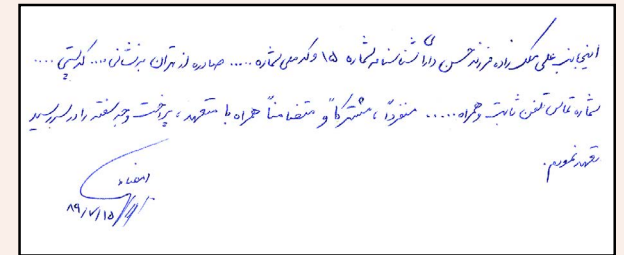 اینجانب علی ملک زاده فرزند حسن دارای شناسنامه شماره ۱۵ و کد ملی شماره ..... صادره از تهران به نشانی .... کد پستی ....
شماره تماس تلفن ثابت و همراه ..... منفرداً، مشترکاً و متضامناً همراه با متعهد، پرداخت وجه سفته را در سررسید
تعهد نمودم.
امضاء
۸۹/۷/۱۵